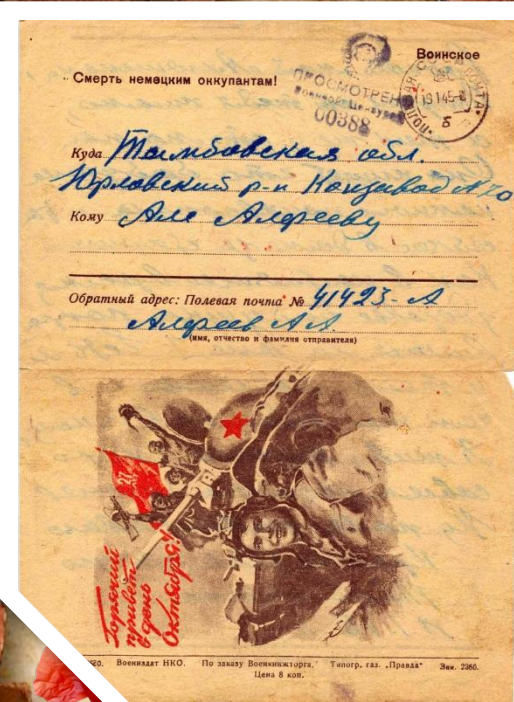 Воинское
Смерть немецким оккупантам!
ПРОСМОТРЕНО
Военной Цензурой
00388
ПОЛЕВАЯ ПОЧТА
19 1 45
Б
Куда Тамбовская обл.
Юрловский р-н Конзавод №70
Кому Але Алфееву
Обратный адрес: Полевая почта № 41423-А
Алфеев А А
(имя, отчество и фамилия отправителя)
27
Горячий
привет
в день
Октября!
Воениздат НКО. По заказу Военкнижторга. Типогр. газ. „Правда" Зак. 2360.
Цена 8 коп.